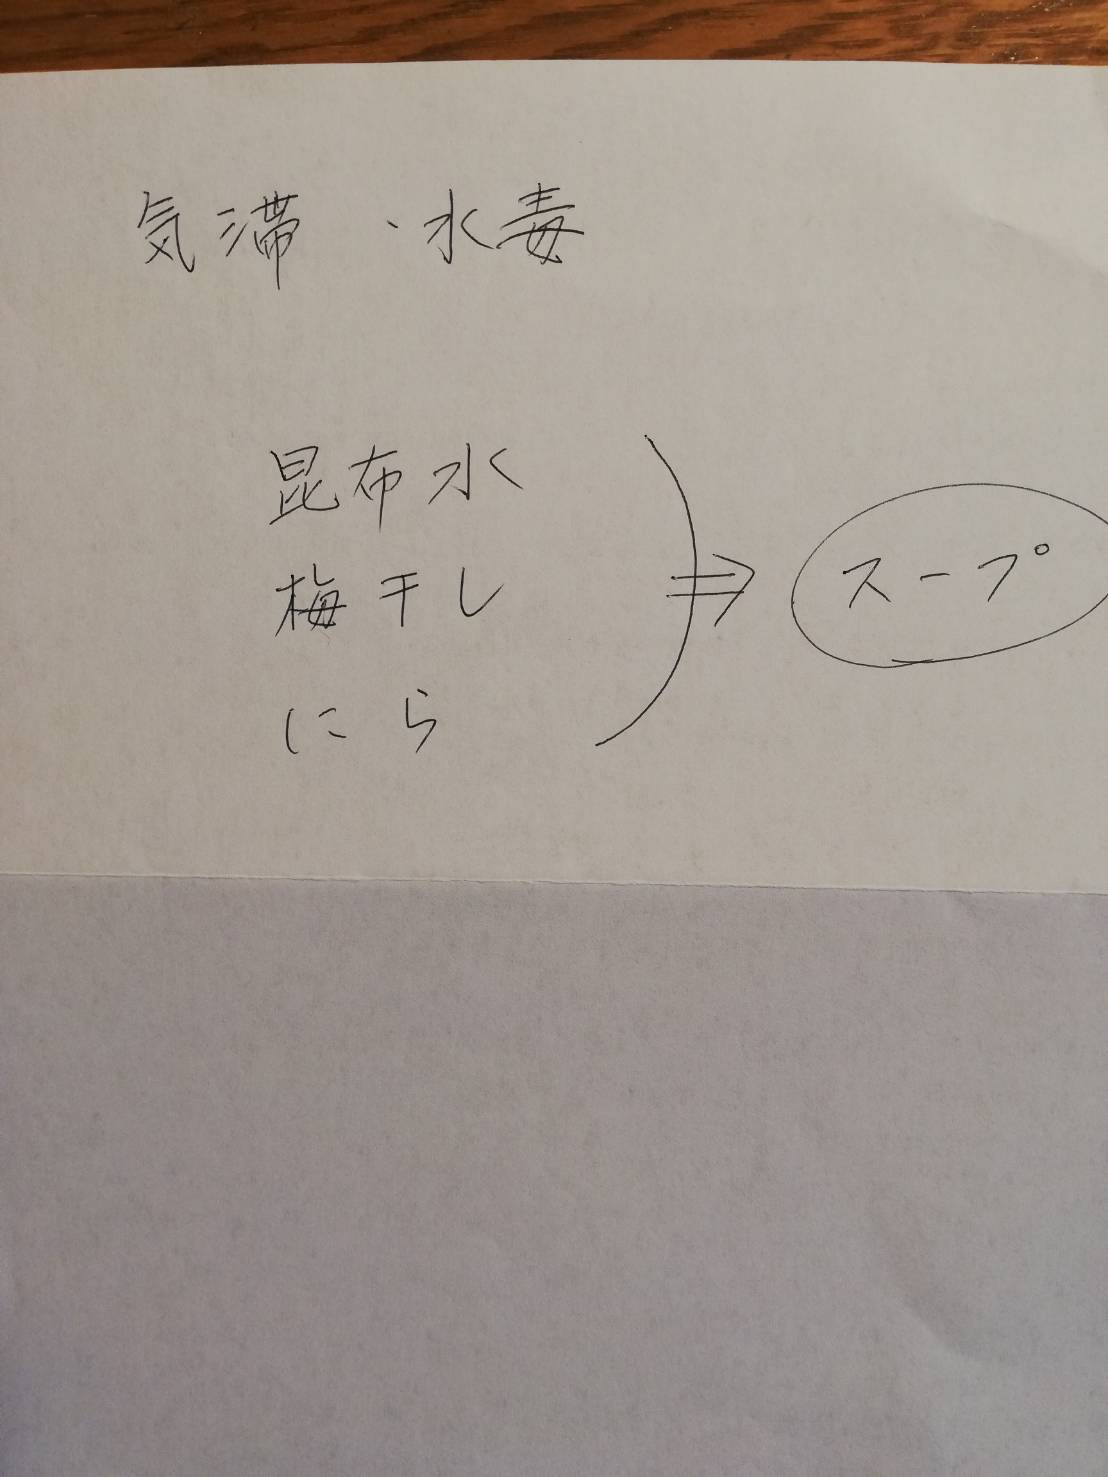 気滞 ・水毒
昆布水
梅干し
にら
⇒ スープ